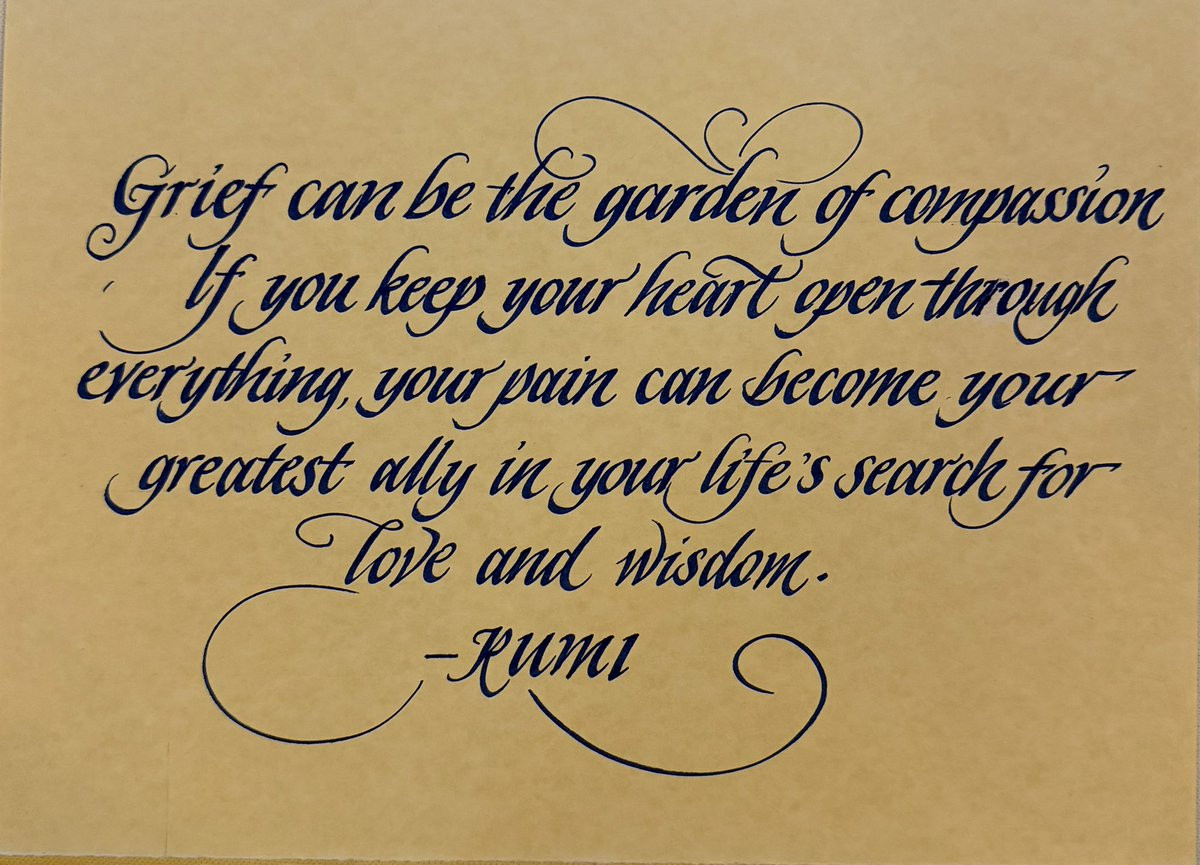 Grief can be the garden of compassion
If you keep your heart open through
everything, your pain can become your
greatest ally in your life's search for
love and wisdom.
-RUMI